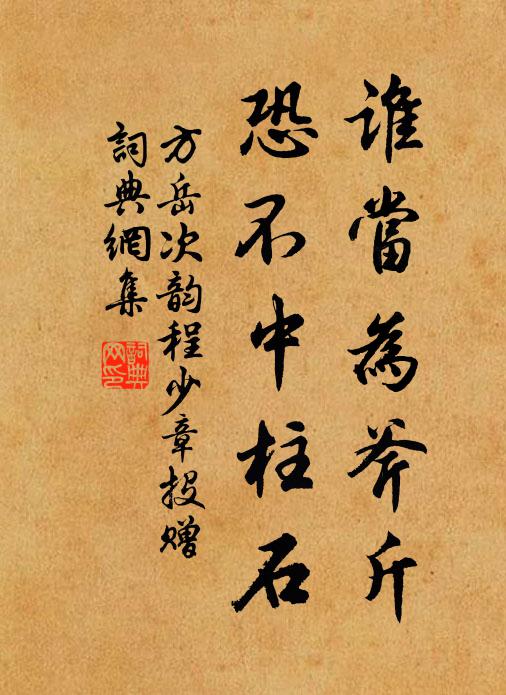 誰當為斧斤
恐不中柱石
方岳次韵程少章投贈
詞典網集
詞典網印